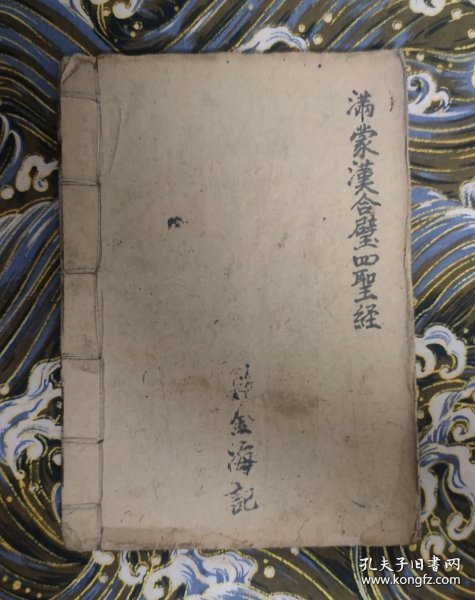 滿蒙漢合璧四聖経
金海記
孔夫子旧书网
www.kongfz.com